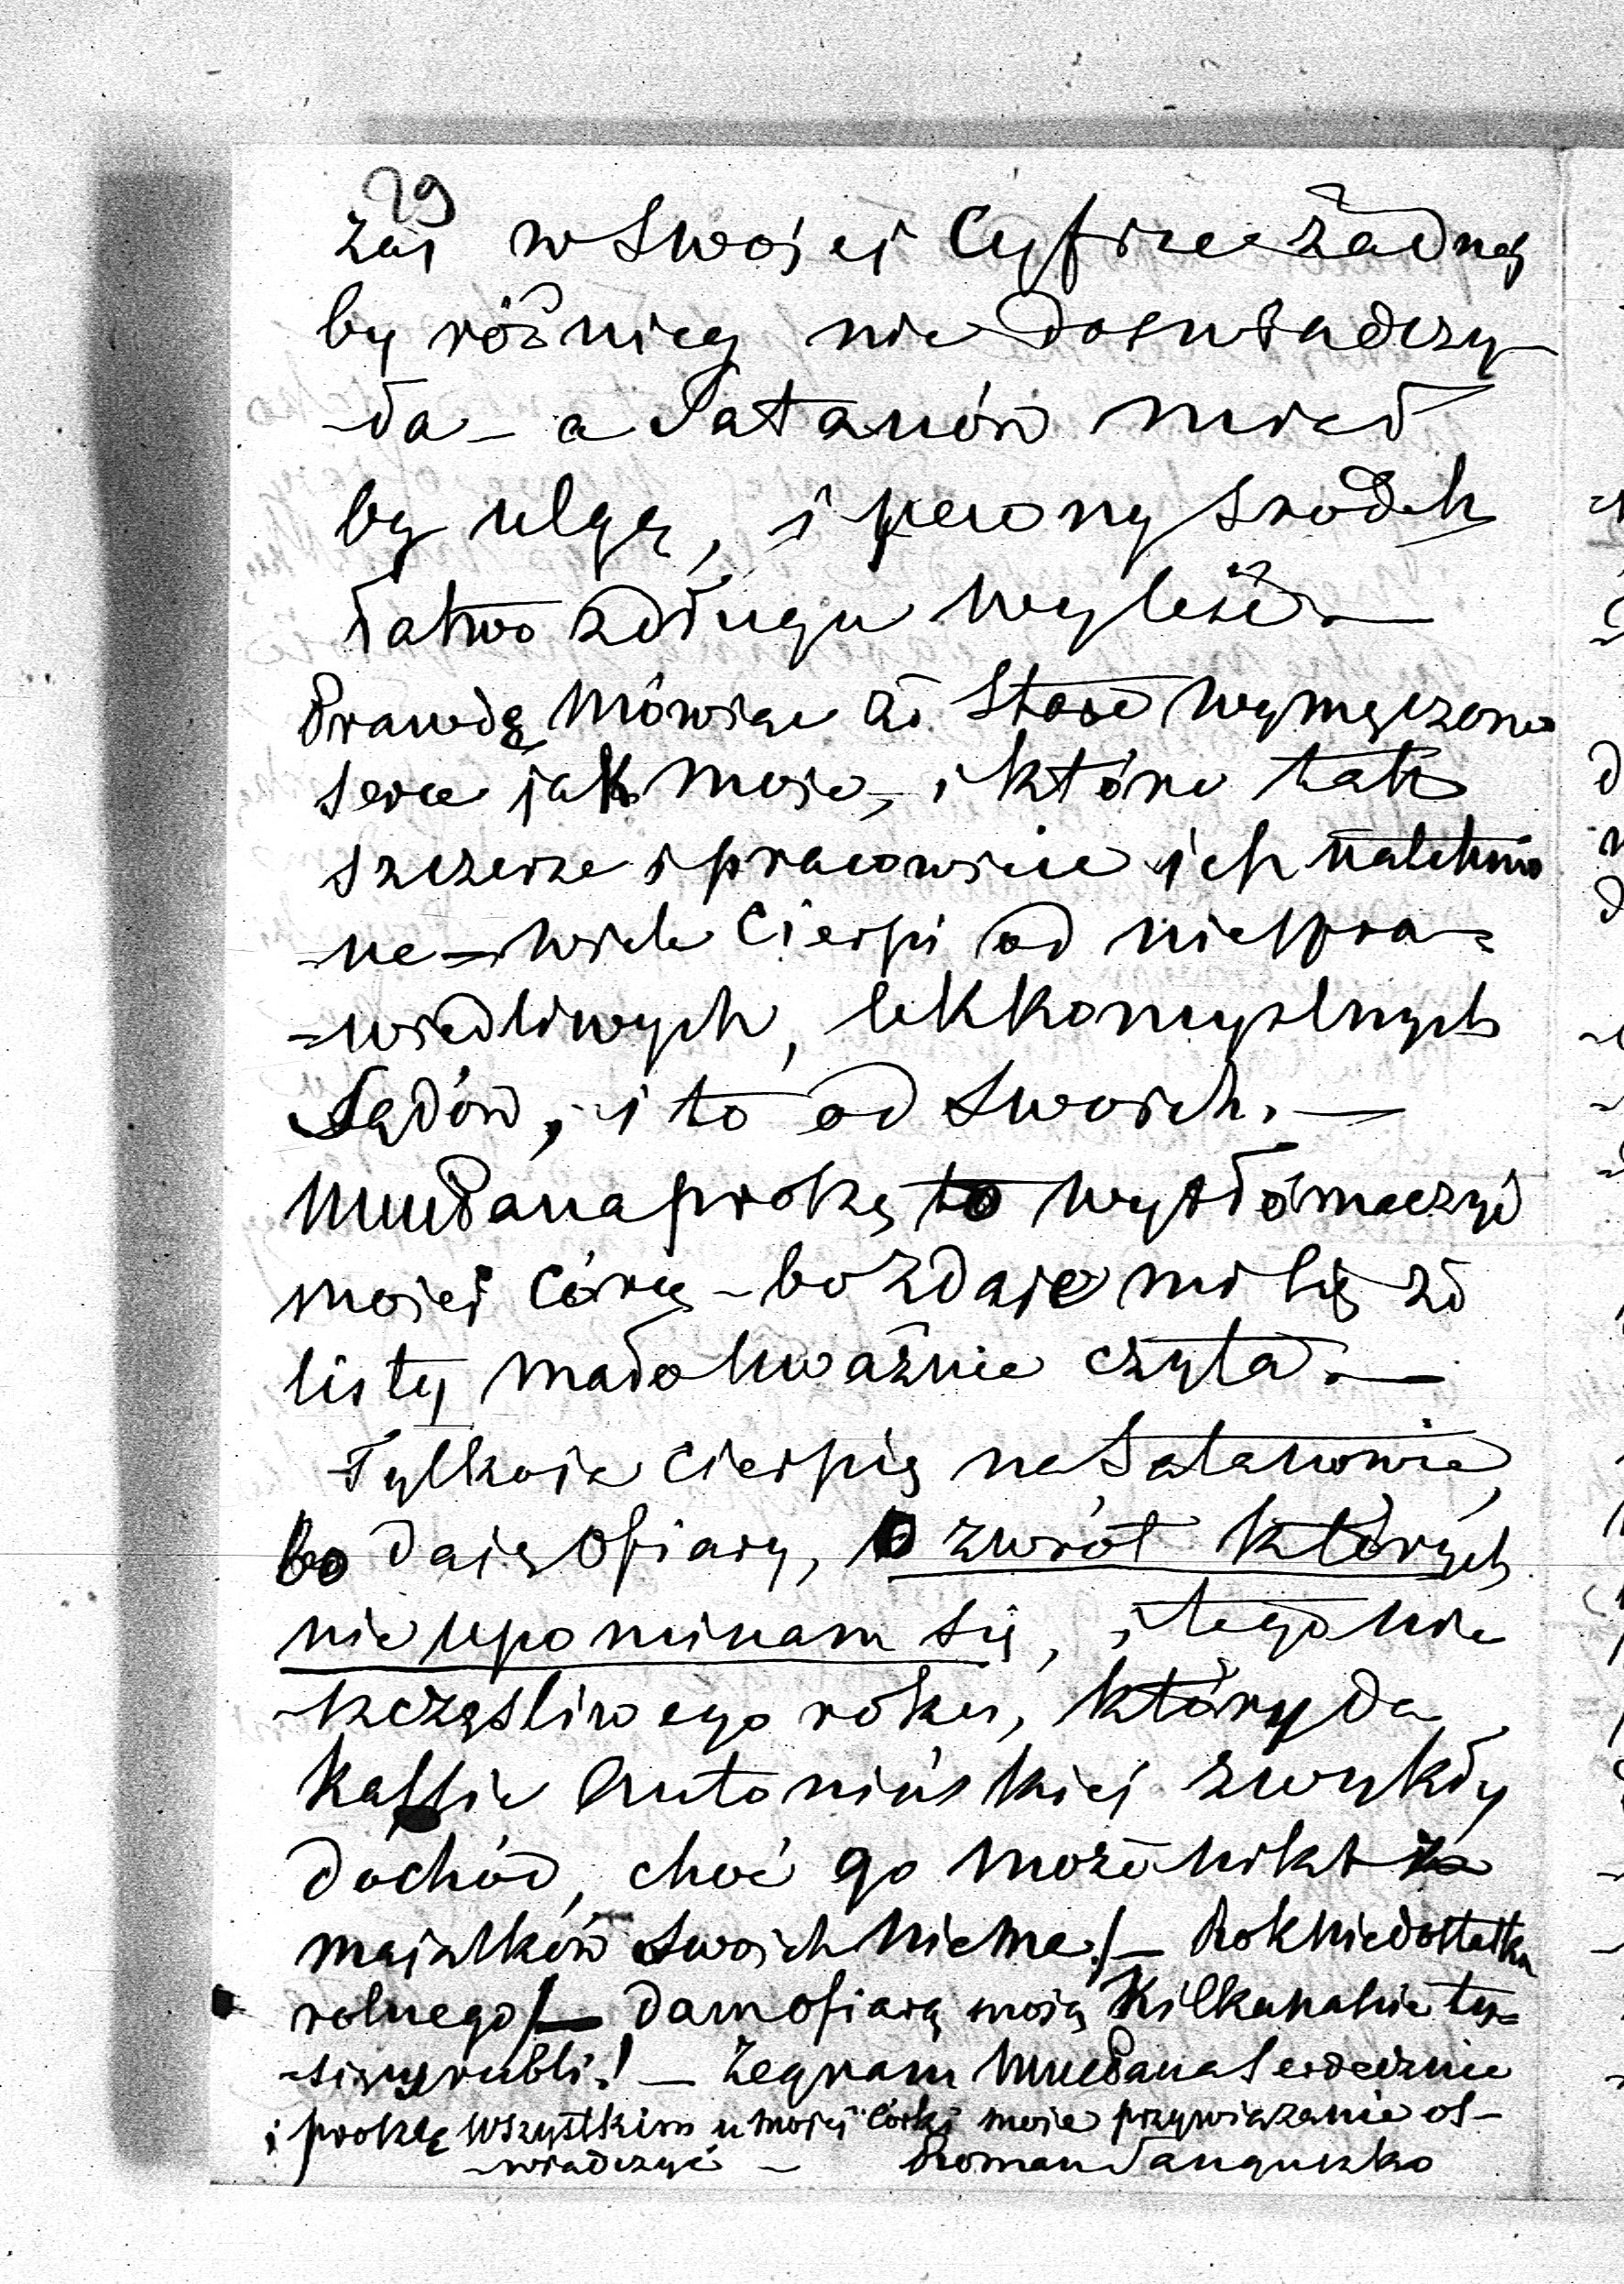 29
zaś w swojej Cyfrze żadnej
by różnicy nie doświadczy-
-ła - a Satanów miał
by ulgę, i pewny środek
łatwo z długu wyleść. —
Prawdę mówiąc że stare wymęczone
serce jak moje, i które tak
szczerze i pracowicie ich
-ne - wiele cierpi od niespra-
-wiedliwych, lekkomyślnych
Sądów, i to od swoich. —
Mu Pana proszę to wytłómaczyć
mojej córce - bo zdaje mi się że
listy mało uważnie czyta. —
Tylko ja cierpię na Satanowie,
bo daję ofiary, o zwrót których
nie upominam się, i tego nie
-szczęśliwego roku, który da
kassie Antonińskiej zwykły
dochód, choć go może nikt z
majątków swoich nie ma! — Rok niedostatku
rolnego! — dam ofiarą moją kilkanaście ty-
-sięcy rubli! — Żegnam Mu Pana serdecznie
i proszę wszystkim u mojej córki moje przywiązanie oś-
-wiadczyć — Roman Sanguszko